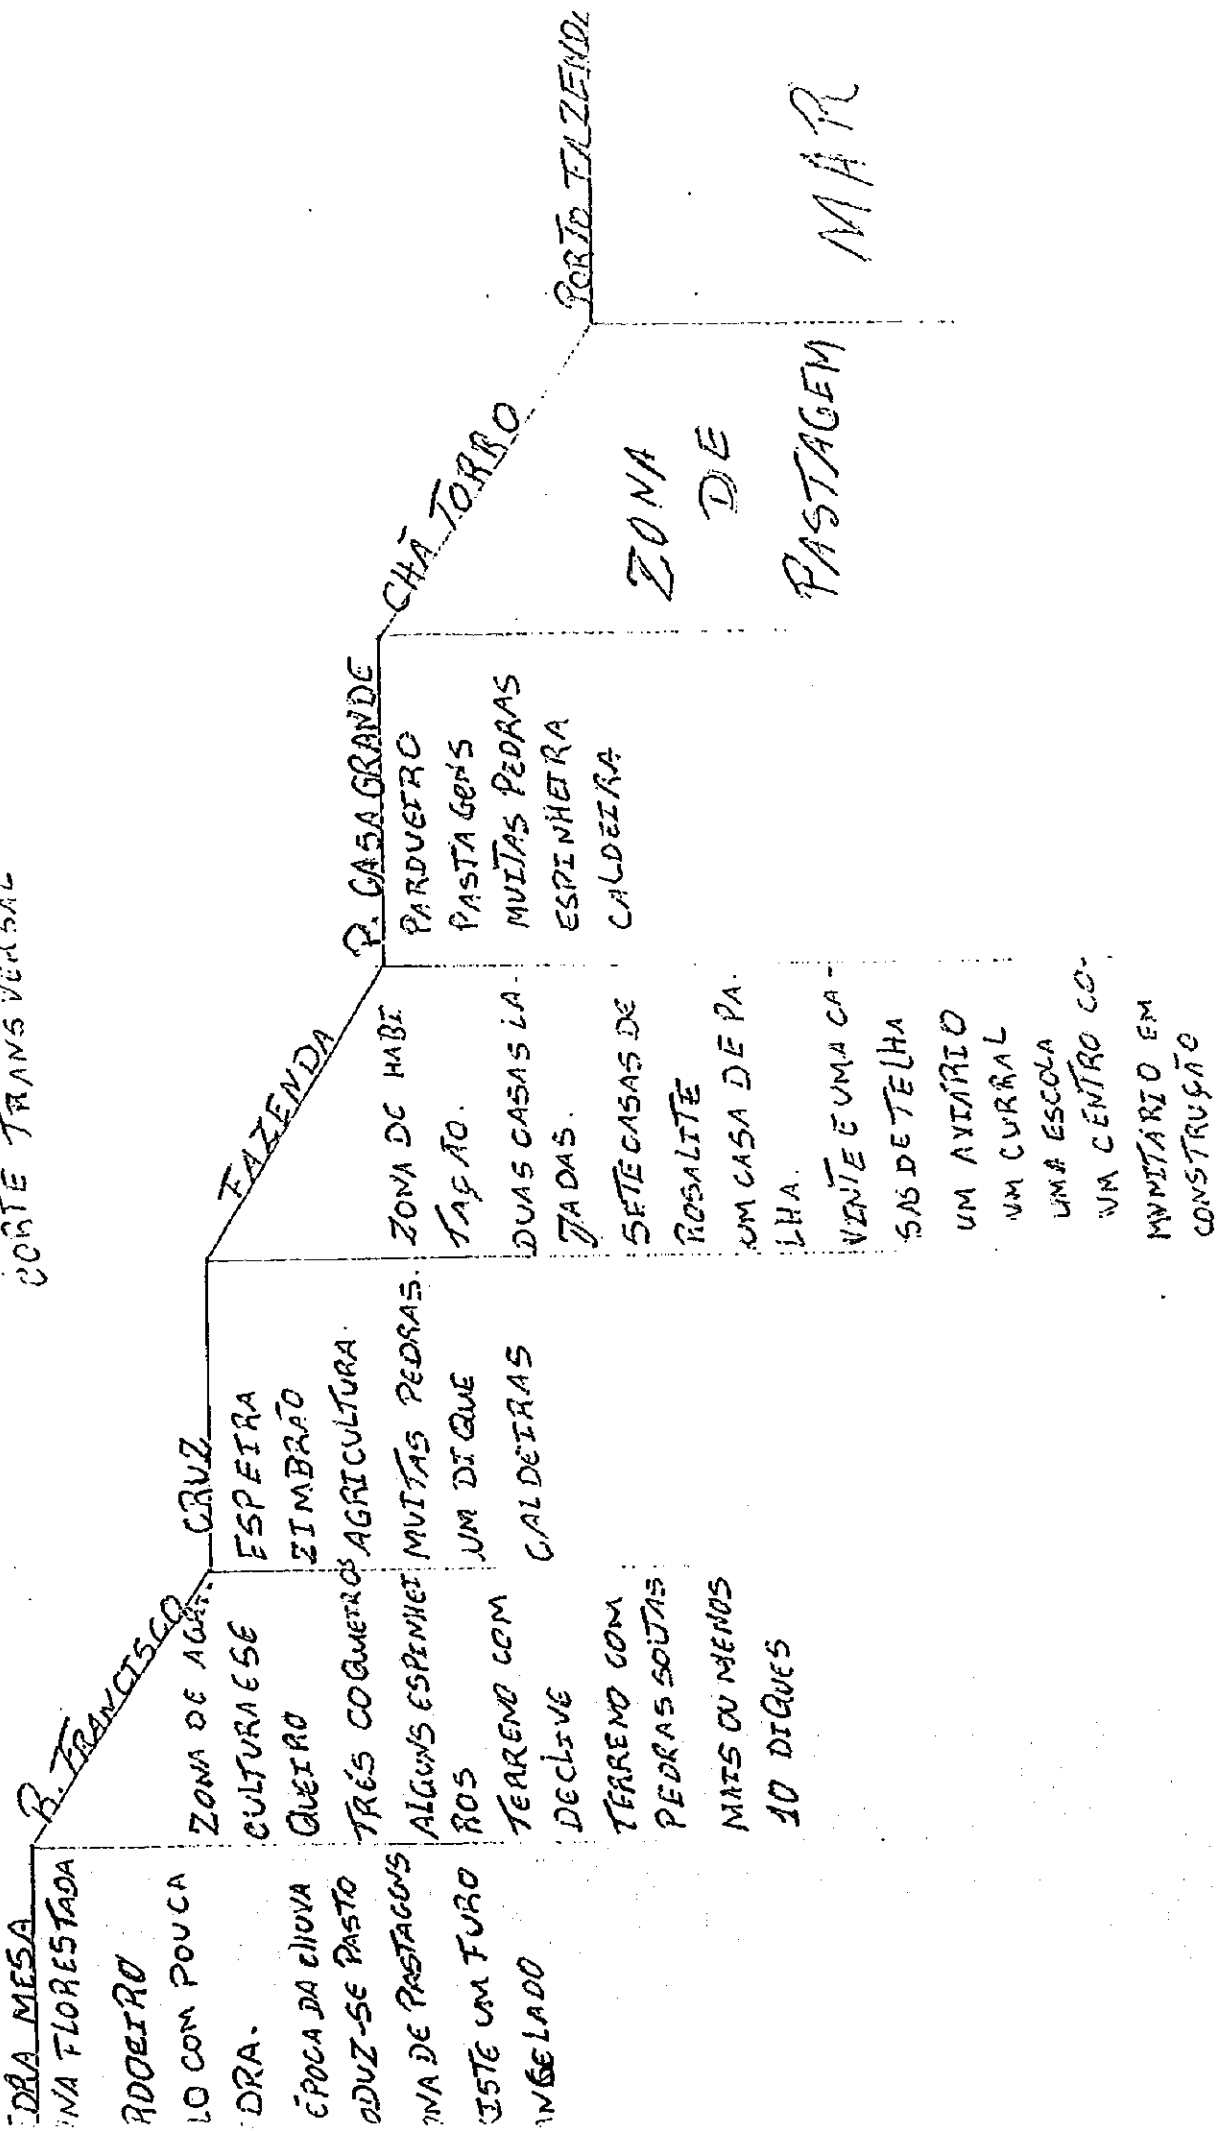 CORTE TRANSVERSAL
DRA MESA
NA FLORESTADA
RDOEIRO
LO COM POUCA
DRA.
ÉPOCA DA CHUVA
ODUZ-SE PASTO
NA DE PASTAGENS
ISTE UM FURO
NGELADO
R. FRANCISCO
ZONA DE AGRI.
CULTURA E SE
QUEIRO
TRÉS COQUEIROS
ALGUNS ESPINHEI
ROS
TERRENO COM
DECLIVE
TERRENO COM
PEDRAS SOLTAS
MAIS OU MENOS
10 DIQUES
CRUZ
ESPEIRA
ZIMBRÃO
AGRICULTURA.
MUITAS PEDRAS.
UM DIQUE
CALDEIRAS
FAZENDA
ZONA DE HABI
TAÇÃO.
DUAS CASAS LA.
JADAS.
SETE CASAS DE
ROSALITE
UM CASA DE PA.
LHA.
VINTE E UMA CA-
SAS DE TELHA
UM AVIÁRIO
UM CURRAL
UMA ESCOLA
UM CENTRO CO-
MUNITÁRIO EM
CONSTRUÇÃO
P. CASA GRANDE
PARDUEIRO
PASTAGENS
MUITAS PEDRAS
ESPINHEIRA
CALDEIRA
CHÃ TORRO
ZONA
DE
PASTAGEM
PORTO FAZENDA
MAR